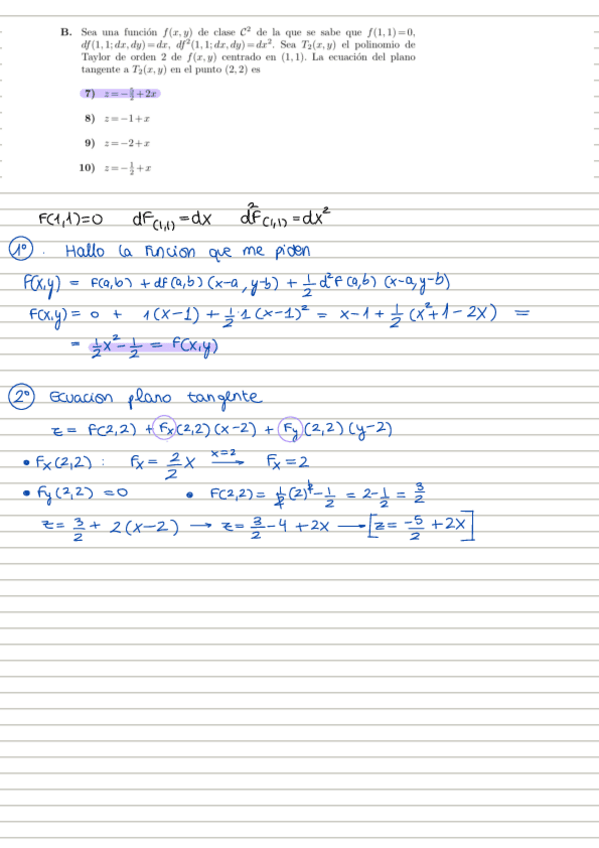 B. Sea una función f(x, y) de clase C² de la que se sabe que f(1, 1)=0,
df(1, 1; dx, dy)=dx, df²(1, 1; dx, dy)=dx². Sea T₂(x, y) el polinomio de
Taylor de orden 2 de f(x, y) centrado en (1, 1). La ecuación del plano
tangente a T₂(x, y) en el punto (2, 2) es
7) z=-5/2+2x
8) z=-1+x
9) z=-2+x
10) z=-1/2+x
F(1,1)=0 dF(1,1)=dx d²F(1,1)=dx²
1º. Hallo la función que me piden
F(x,y) = F(a,b) + dF(a,b)(x-a, y-b) + 1/2 d²F(a,b) (x-a, y-b)
F(x,y) = 0 + 1(x-1) + 1/2·1(x-1)² = x-1 + 1/2 (x²+1-2x) =
= 1/2x² - 1/2 = F(x,y)
2º Ecuacion plano tangente
z = F(2,2) + Fx(2,2)(x-2) + Fy(2,2)(y-2)
• Fx(2,2): Fx = 2/2 x x=2→ Fx = 2
• Fy(2,2) = 0 • F(2,2) = 1/2(2)² - 1/2 = 2 - 1/2 = 3/2
z = 3/2 + 2(x-2) → z = 3/2 - 4 + 2x → [z = -5/2 + 2x]